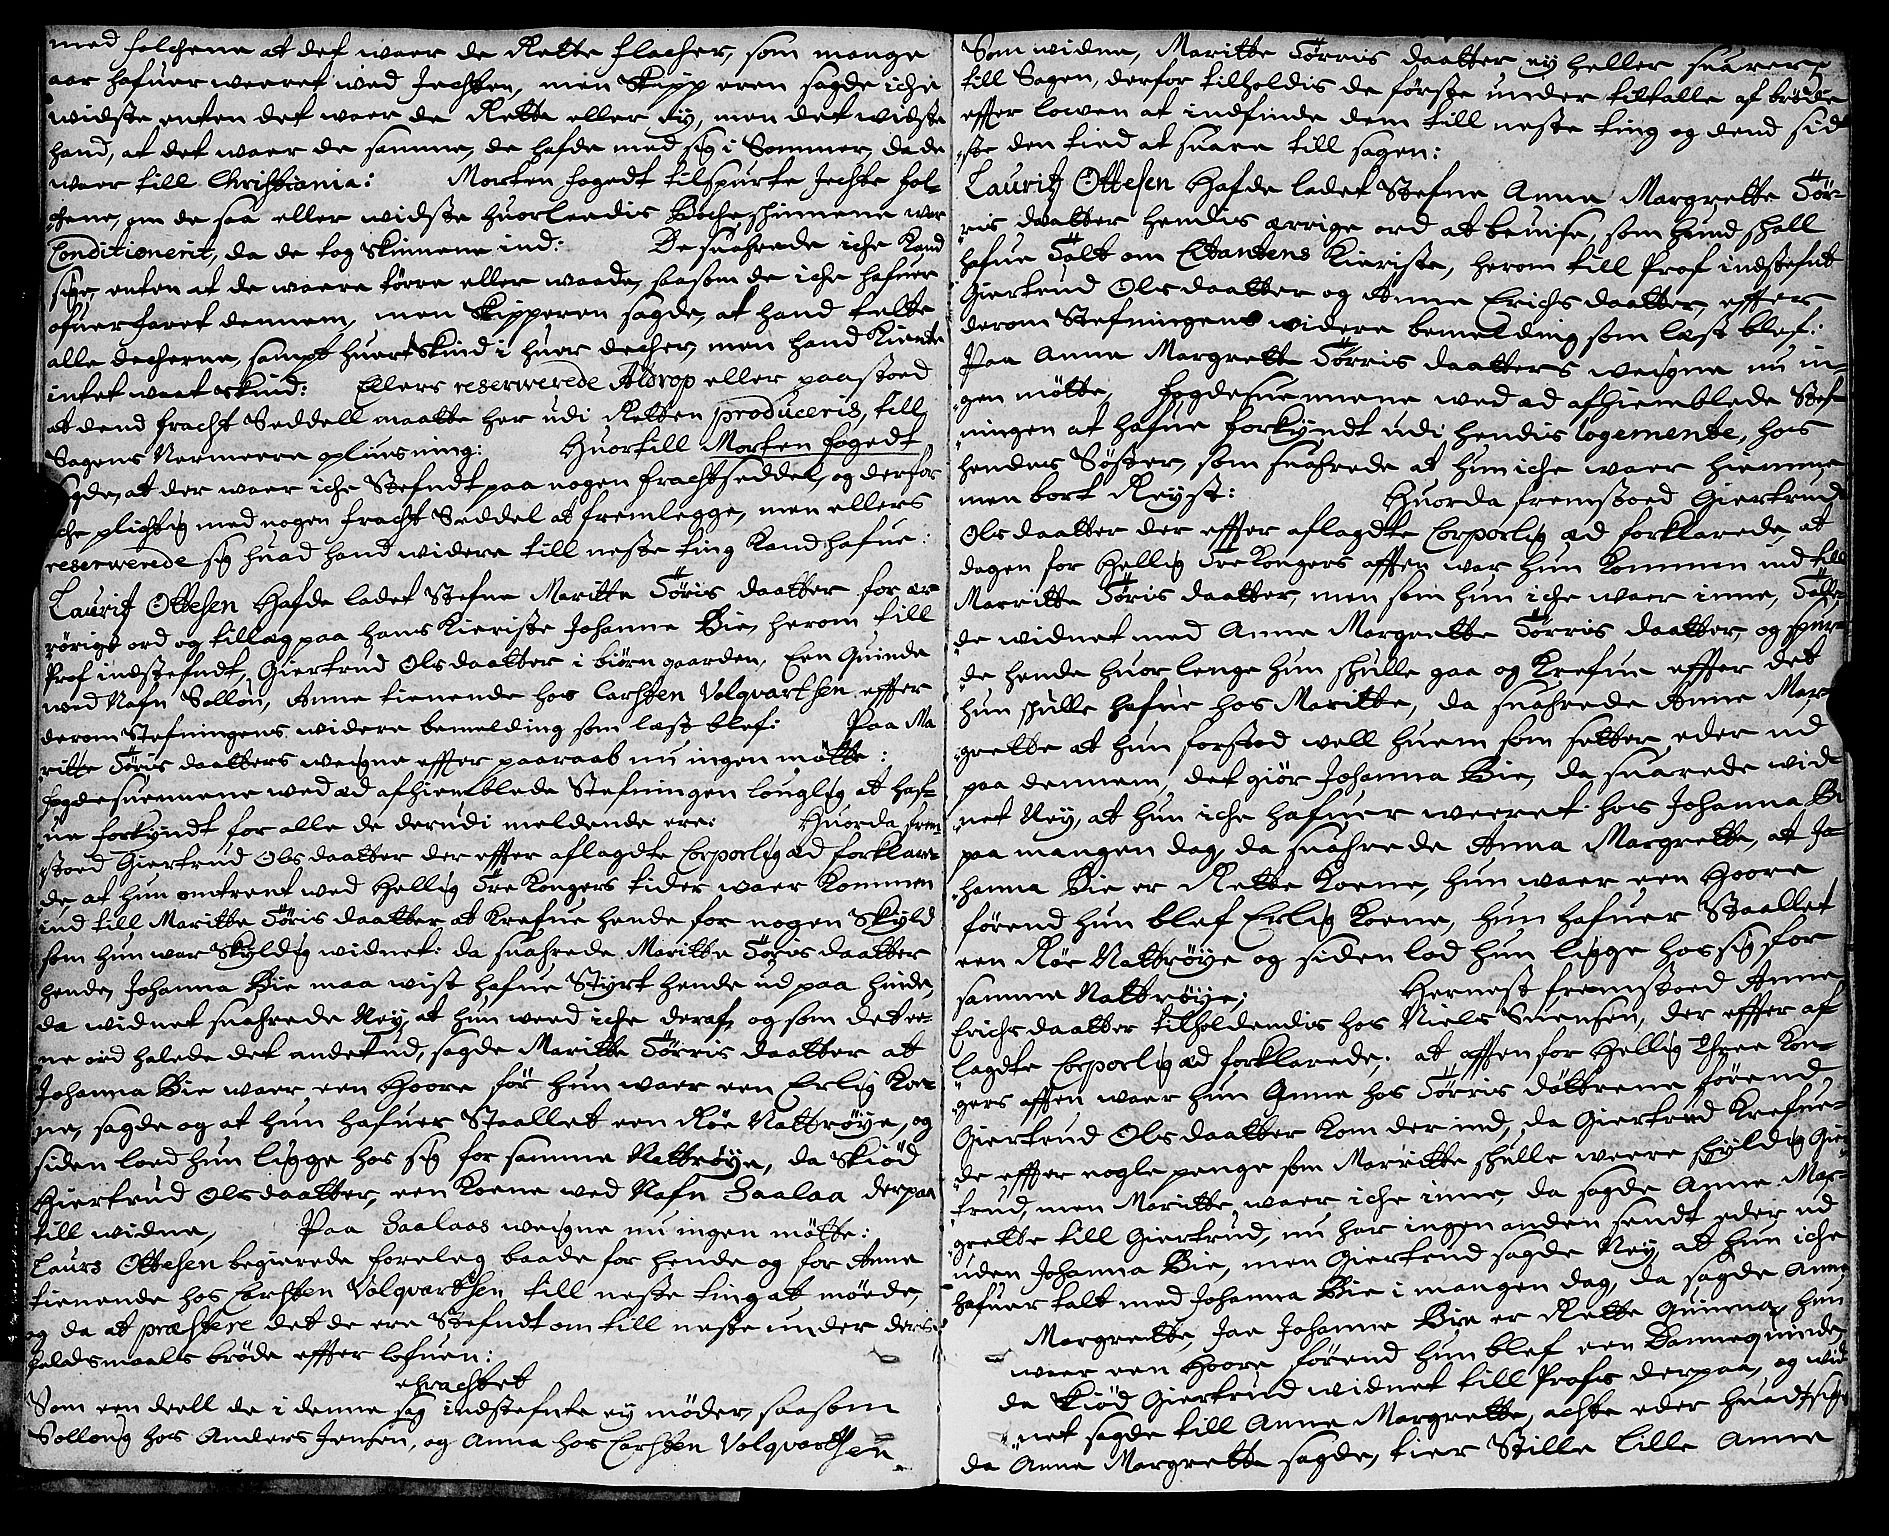 med folchene at det waer de Rette flacher, som mange
aar hafuer weeret wed Jechten, men Skipperen sagde iche
widste enten det waer de Rette eller ey, men det widste
hand, at det waer de samme, de hafde med sig i Sommer, da de
waer till Christiania: Morten fogedt tilspurte Jechte fol-
chene, om de saa eller widste huorleedis Bocheskinnene war
Conditionerit, da de tog skinnene ind: De suahrede iche Kand
sige, enten at de waere tørre eller waade, saasom de iche hafuer
ofuerfaret dennem, men Skipperen sagde, at hand talte
alle decherne, sampt huert skind i huer decher, men hand Kiente
intet waat skind: Ellers reserwerede Aldrop eller paastoed
at dend fracht Seddell maatte her udi Retten produceris, till
Sagens Nermeere oplusning: Huortill Morten fogedt
sagde, at der waer iche Stefndt paa nogen frachtseddel, og derfor
iche plichtig med nogen fracht Seddel at fremlegge, men ellers
reserwerede sig huad hand widere till neste ting Kand hafue:
Lauritz Ottesen Hafde ladet Stefne Maritte Töris daatter for ær
rörige ord og tillæg paa hans Kieriste Johanna Bie, herom till
Prof indstefndt, Giertrud Olsdaatter i biørngaarden, Een Quinde
wed Nafn Sollou, Anne tienende hos Carsten Volqvartsen, effter
derom Stefningens widere bemelding som læst blef: Paa Ma
ritte Töris daatters weigne effter paaraab nu ingen mötte:
fogdesuennene wed æd afhiemblede Stefningen louglig at haf-
ue forkyndt for alle de derudi meldende ere: Huorda frem
stoed Giertrud Olsdaatter der effter aflagdte Corporlig æd forklare-
de, at hun omtrent wed Hellig Tre Kongers tider waer Kommen
ind till Maritte Töris daatter at Krefue hende for nogen Skyld
som hun war Skyldig widnet: da suahrede Maritte Töris daatter
hende, Johanna Bie maa wist hafue Styrt hende ud paa hinde,
da widnet suahrede Ney, at hun weed iche deraf, og som det ee-
ne ord halede det andet ud, sagde Maritte Törris daatter at
Johanna Bie waer een Hoore før hun waer een Erlig Koe-
ne, sagde og at hun hafuer Staallet een Røe Nattröye, og
siden loed hun ligge hos sig for samme Nattröye, da Skiöd
Giertrud Olsdaatter, een Koene wed Nafn Saalaa derpaa
till widne, Paa Saalaas weigne nu ingen mötte:
Laurs Ottesen begierede forelag baade for hende og for Anne
tienende hos Carsten Volqvartsen till neste ting at möede,
og da at præstere det de ere Stefndt om till neste under deris
faldsmaalls bröde effter lofuen:
erachtet
Som een deell de i denne sag indstefnte ey möder, saasom
Sollong hos Anders Jensen, og Anna hos Carsten Volqvartsen
5
Som widne, Maritte Törris daatter ey heller suarer
till Sagen, derfor tilholdis de förste under tiltalle af bröde
effter lowen at indfinde dem till neste ting og dend sid
ste den tied at suare till sagen:
Lauritz Ottesen Hafde ladet Stefne Anna Margrette Tör-
ris daatter hendis ærrige ord at beuise, som hund skall
hafue Talt om Citantens Kieriste, herom till Prof indstefnt
Giertrud Olsdaatter og Anne Erichsdaatter, effter
derom Stefningens widere bemelding som læst blef:
Paa Anna Margrette Törris daatters weigne nu in-
gen mötte, fogdesuennene wed æd afhiemblede Stef-
ningen at hafue forkyndt udi hendis logemente, hos
hendes Söster, som suahrede at hun iche waer hiemme
men bort Reyst: Huorda fremstoed Giertrud
Olsdaatter der effter aflagdte Corporlig æd forklarede, at
dagen for Hellig Tre Kongers afften war hun Kommen ind till
Marritte Töris daatter, men som hun iche waer inne, Talte-
de widnet med Anne Margrette Törris daatter, og spur-
de hende huor lenge hun skulle gaa og Krefue effter det
hun skulle hafue hos Maritte, da suahrede Anne Mar-
grette at hun forstod well huem som setter eder ud
paa dennem, det giör Johanna Bie, da suarede wid
net Ney, at hun iche hafuer weeret hos Johanna Bi
paa mangen dag, da suahrede Anna Margrette, at Jo-
hanna Bie er Rette Koene, hun waer een Hoore
förend hun blef Erlig Koene, hun hafuer Staallet
een Röe Nattröye og siden lod hun ligge hos sig for
samme Nattröye; Hernest fremstoed Anne
Erichsdaatter tilholdendis hos Niels Suensen, der effter af
lagdte Corporlig æd forklarede, at afften for Hellig Three Kon-
gers afften waer hun Anne hos Törris döttrene förend
Giertrud Olsdaatter Kom der ind, da Giertrud Krefue-
de effter nogle penge som Marritte skulle weere skyldig Gier
trud, men Maritte waer iche inne, da sagde Anne Mar-
grette till Giertrud, nu har ingen anden sendt eder ud
uden Johanna Bie, men Giertrud sagde Ney at hun iche
hafuer talt med Johanna Bie i mangen dag, da sagde Anne
Margrette, Jaa Johanna Bie er Rette Quinna, hun
waer een Hoore förend hun blef een Dannequinde,
da Skiöd Giertrud widnet till Profs derpaa, og wid
net sagde till Anna Margrette, achte eder huad I sige
da Anna Margrette sagde, tier Stille lille Anne